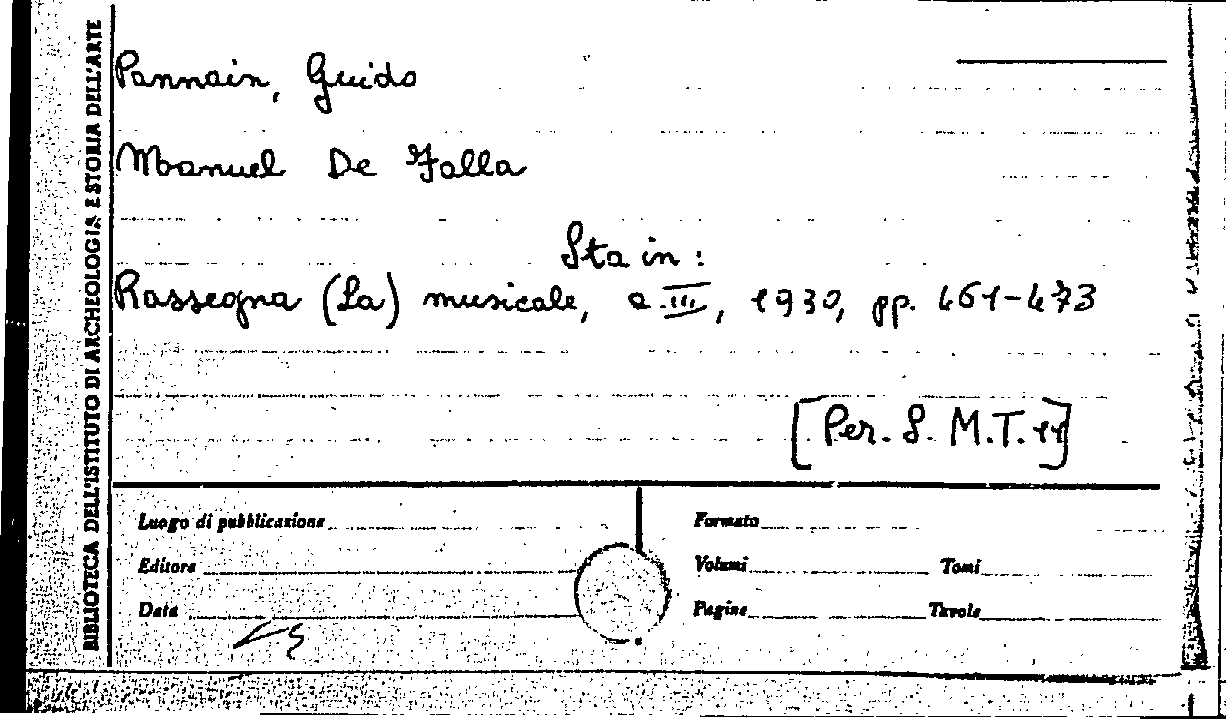 BIBLIOTECA DELL'ISTITUTO DI ARCHEOLOGIA E STORIA DELL'ARTE
Pannain, Guido
Manuel De Falla
Sta in:
Rassegna (La) musicale, a. III, 1930, pp. 461-473
[Per. S. M.T. 11]
Luogo di pubblicazione
Formato
Editore
Volumi Tomi
Data
Pagine Tavole